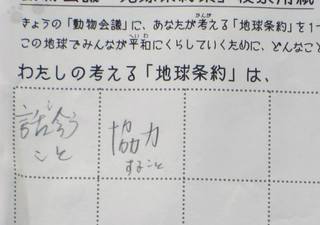 きょうの「動物会議」に、あなたが考える「地球条約」を1
この地球でみんなが平和にくらしていくために、どんなこと
わたしの考える「地球条約」は、
話し合う
こと
協力
すること